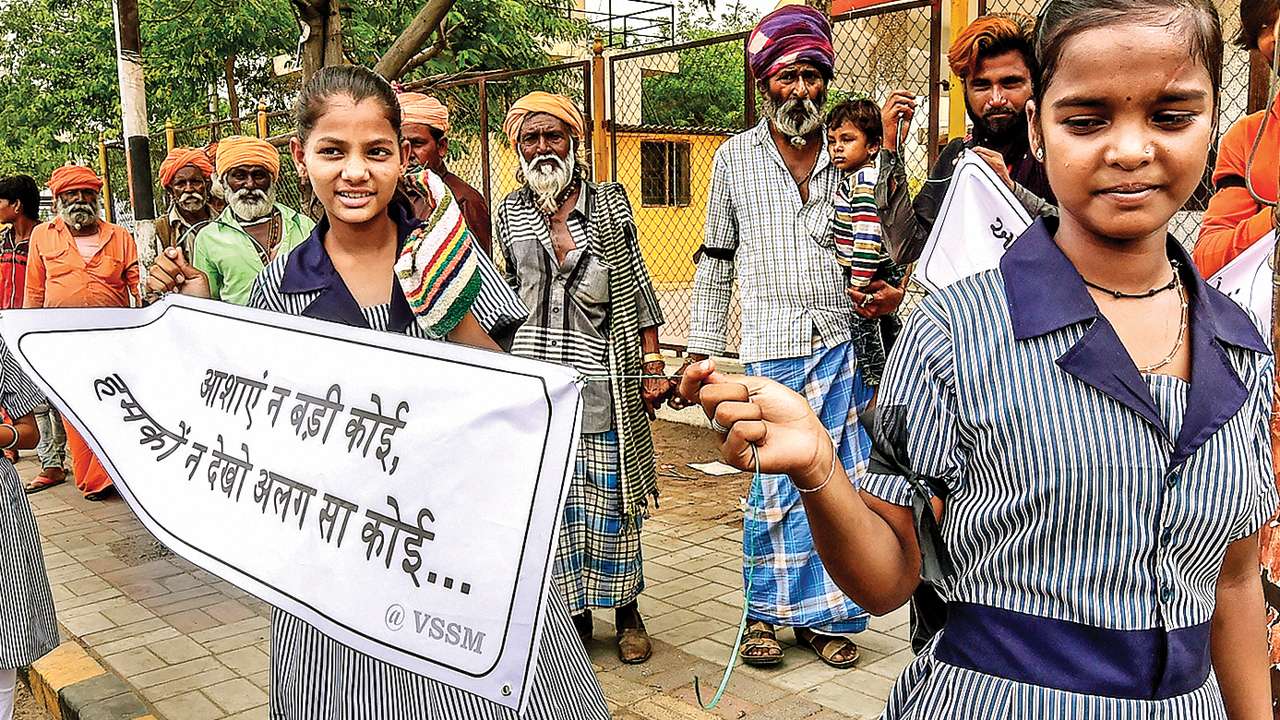 आशाएं न बड़ी कोई,
हमकों न देखो अलग सा कोई...
@ VSSM